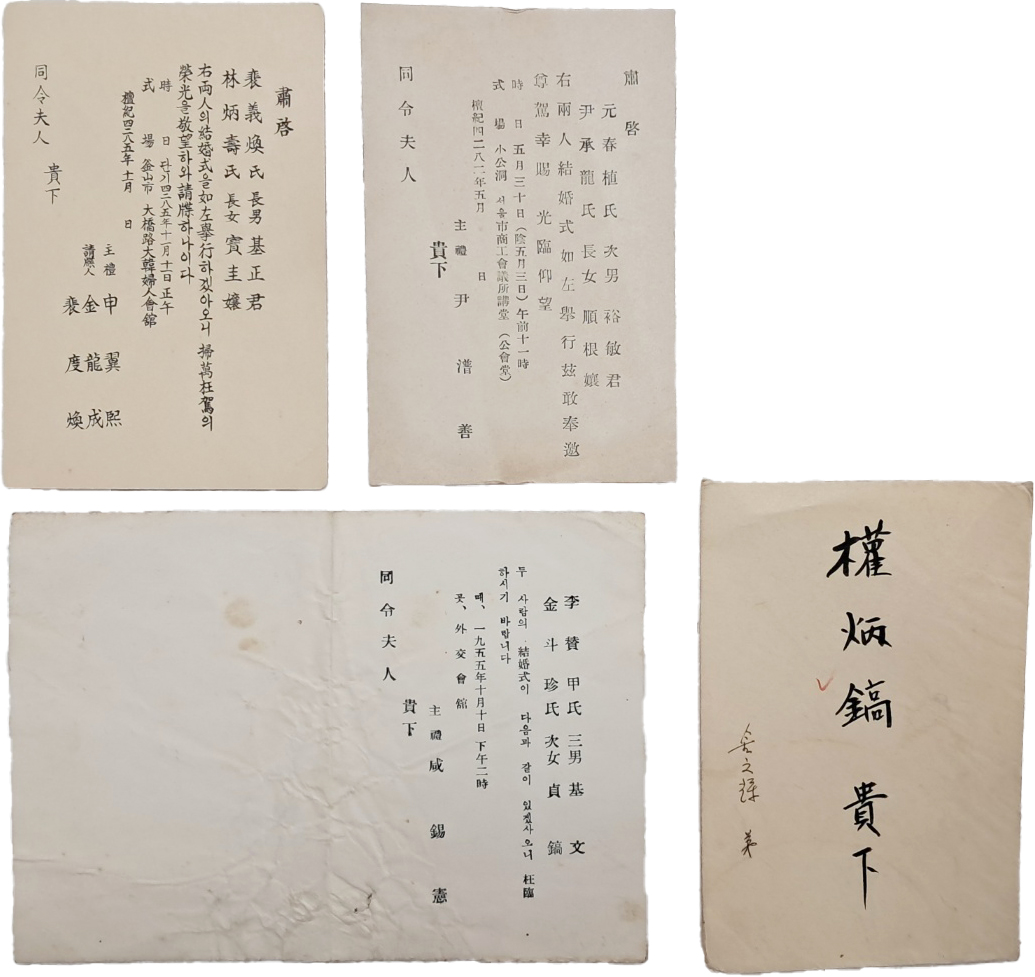 肅啓
裵義煥氏 長男 基正君
林炳壽氏 長女 寶圭孃
右両人의結婚式을如左擧行하겠아오니 掃萬枉駕의
榮光을敬望하와請牒하나이다
時 日 단기四二八五年十一月十一日 正午
式 場 釜山市 大橋路大韓婦人會舘
檀紀四二八五年十一月 日
主禮 申翼熙
請牒人 金龍成
裵度煥
同令夫人 貴下
肅啓
元春植氏 次男 裕敏君
尹承龍氏 長女 順根孃
右兩人結婚式如左擧行茲敢奉邀
尊駕幸賜 光臨仰望
時 日 五月三十日(陰五月三日)午前十一時
式 場 小公洞 서울市商工會議所講堂(公會堂)
檀紀四二八二年五月 日
主禮 尹潽善
貴下
同令夫人
李贊甲氏 三男 基文
金斗珍氏 次女 貞鎬
두 사람의 結婚式이 다음과 같이 있겠사오니 枉臨
하시기 바랍니다
때、一九五五年十月十日 下午二時
곳、外交會舘
主禮 咸錫憲
貴下
同令夫人
權炳鎬 貴下
弟